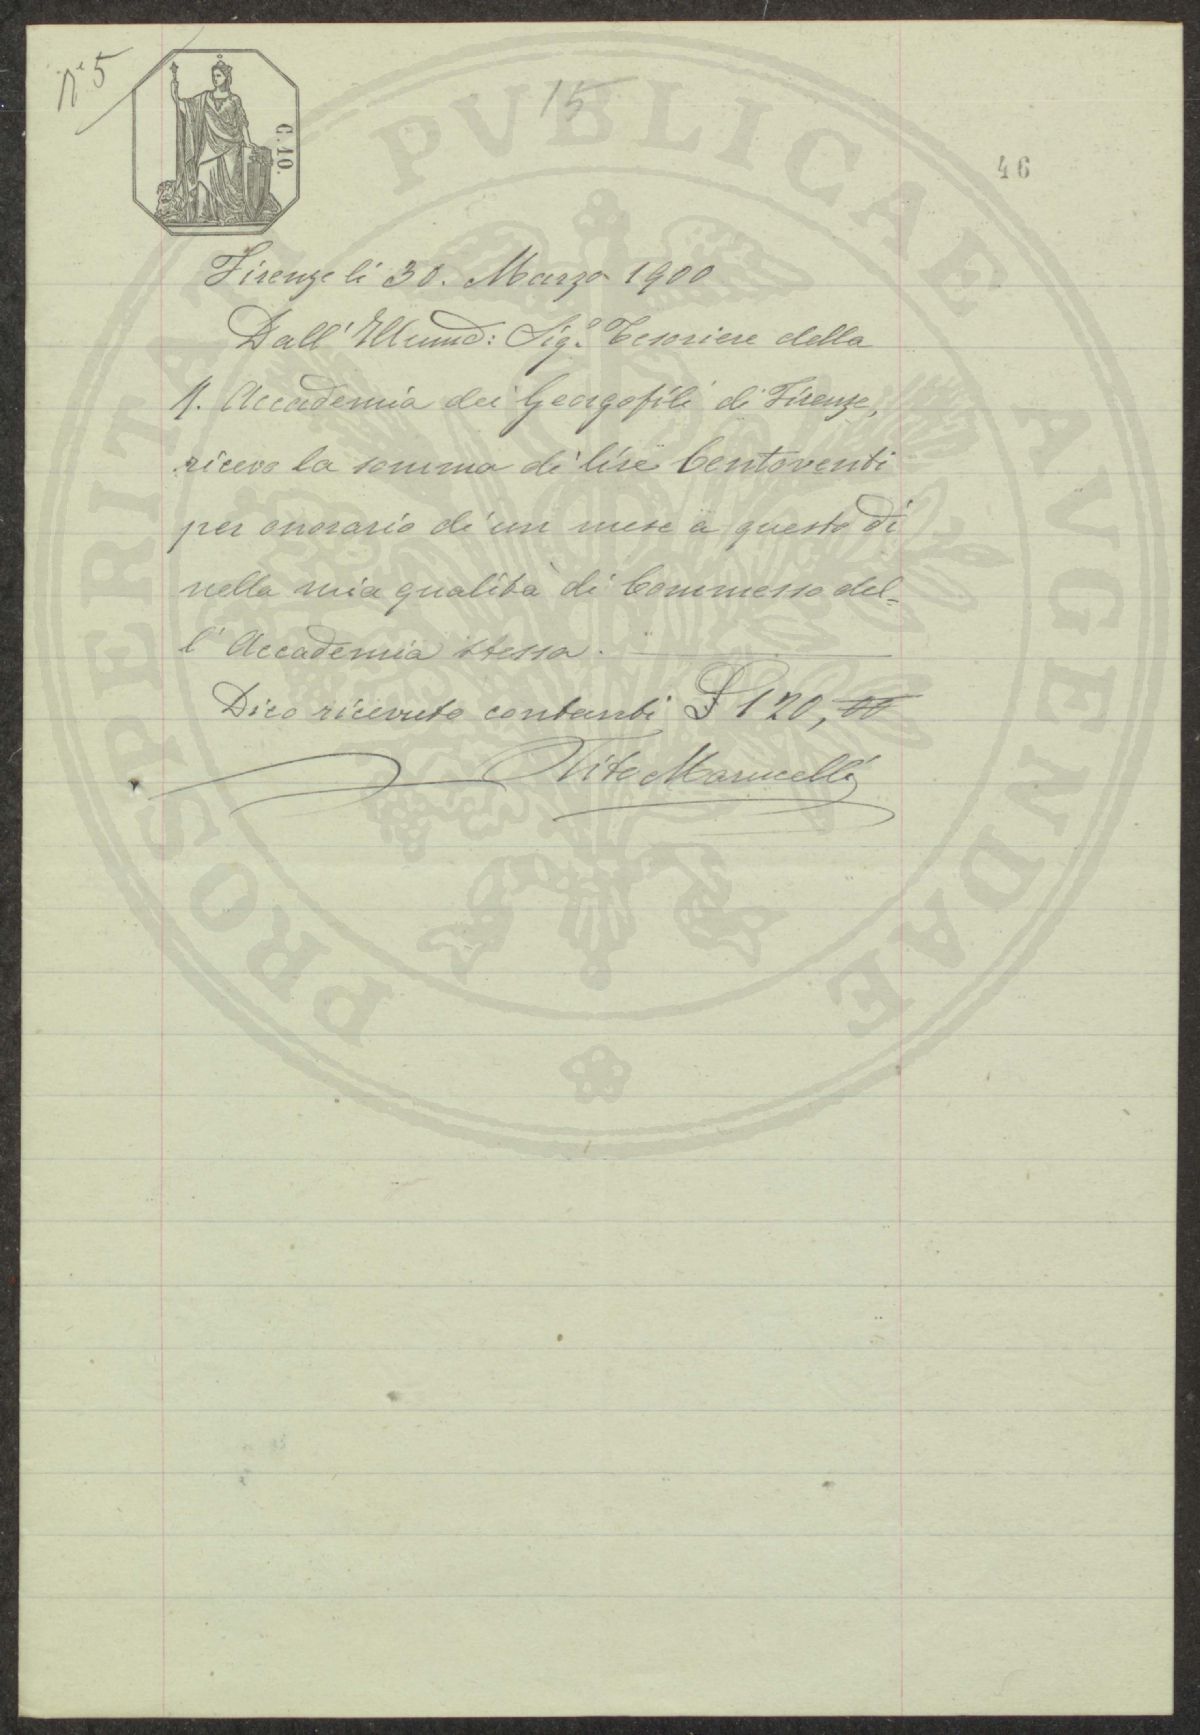 N.° 5
15
C. 10.
46
Firenze li 30. Marzo 1900
Dall' Illumo: Sig.e Tesoriere della
R. Accademia dei Georgofili di Firenze,
ricevo la somma di lire Centoventi
per onorario di un mese a questo dì
nella mia qualità di Commesso del=
l' Accademia stessa.
Dico ricevute contanti £ 120,00
Tito Marucelli
PROSPERITATI PVBLICAE AVGENDAE